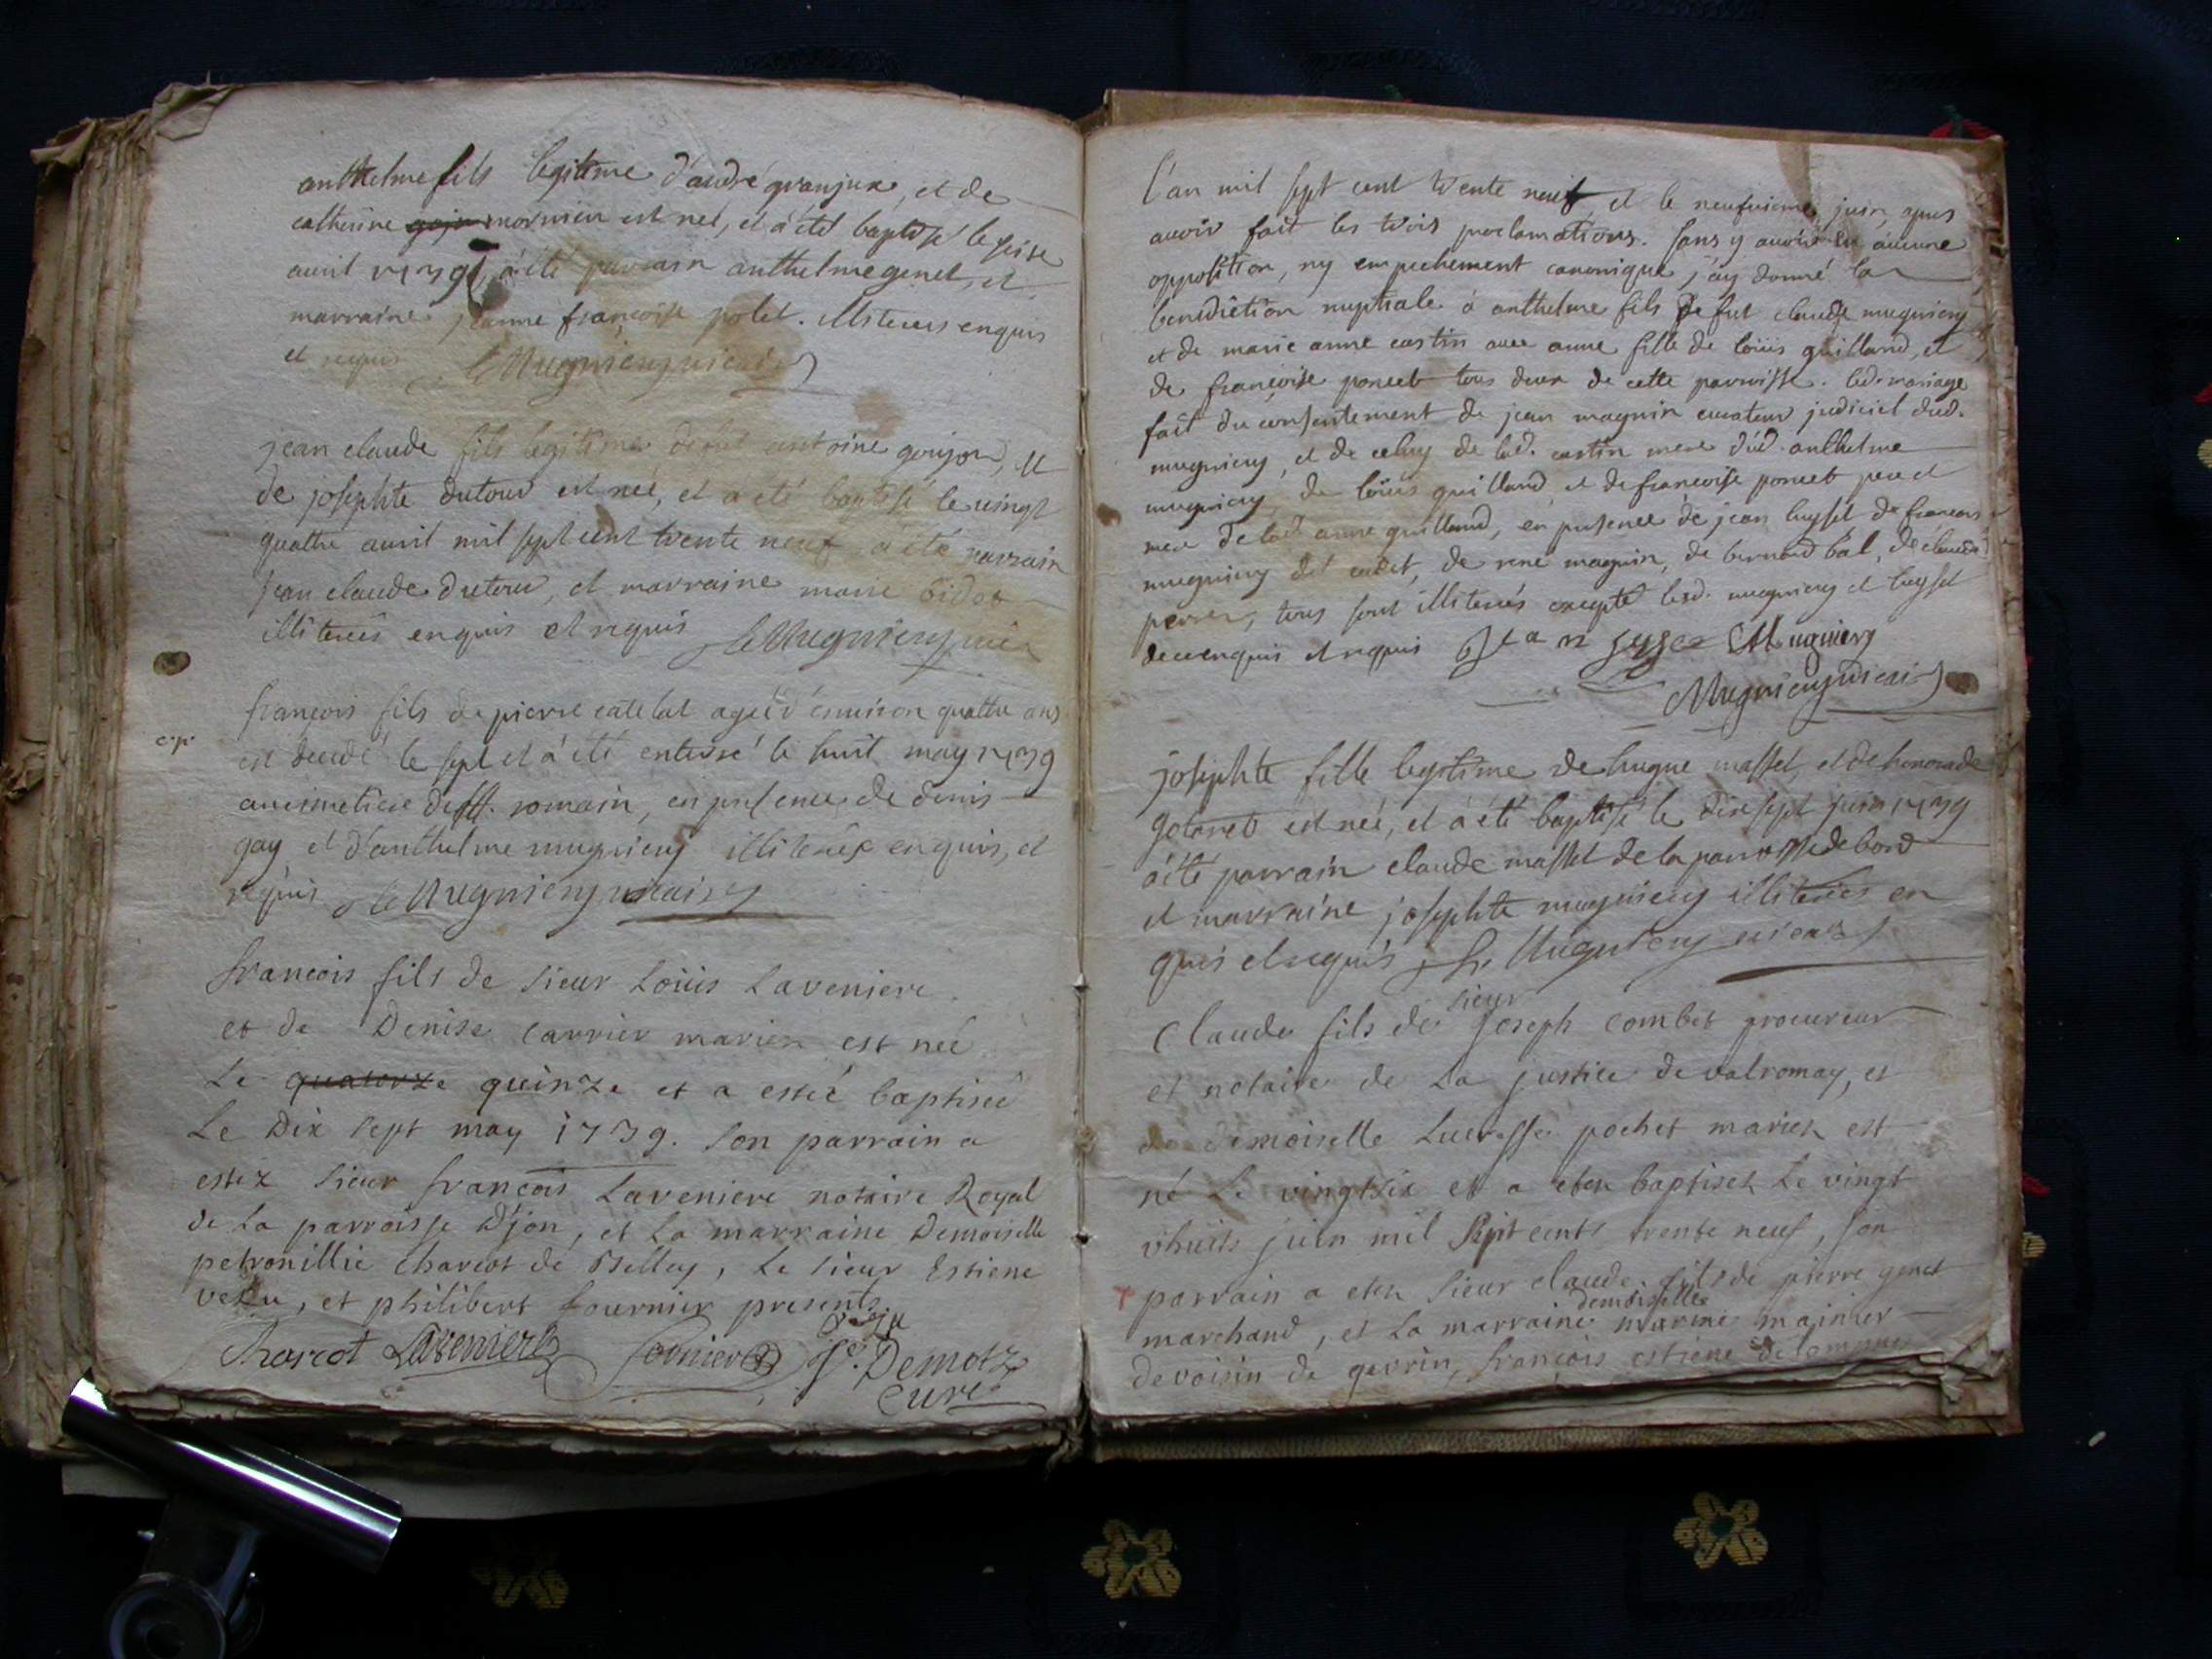 anthelme fils legitime d'andré granjux, et de
catherine mornieu est neé, et a été baptisé le seise
avril 1739, a été parrain anthelme genet, et
marraine jeanne françoise polet. illiterés enquis
et requis Mugnieryvicai.
jean claude fils legitime antoine goujon, et
de josephte dutour est neé, et a eté baptisé le vingt
quattre avril mil sept cent trente neuf a été parrain
jean claude dutour, et marraine marie
illiterés enquis et requis Mugniery vic
françois fils de pierre catelat ageé d'environ quattre ans
est decedé le sept et a été enterré le huit may 1739
au cimetiere de st. romain, en presence de denis
gay et d'anthelme mugniery illiterés enquis, et
requis Mugniery vicaire
c.p.
françois fils de sieur Loüis Laveniere
et de Denise Carrier mariez est neé
Le quatorze quinze et a esté baptiseé
Le Dix sept may 1739. son parrain a
estez sieur françois Laveniere notaire Royal
de La parroisse D'jon, et La marraine Demoiselle
petronillie Charcot de Belley, Le sieur Estiene
veƶu, et philibert fournier presents
Charcot Laveniere fornier Demotz
curé
l'an mil sept cent trente neuf et le neufvieme juin, apres
avoir fait les trois proclamations. sans y avoir eu aucune
opposition, ny empechement canonique, j'ay donné la
benediction nuptiale à anthelme fils de fut claude mugniery
et de marie anne castin avec anne fille de loüis guilland, et
de françoise poncet tous deux de cette parroisse. led. mariage
fait du consentement de jean magnin curateur judiciel dud.
mugniery, et de celuy de lad. castin mere dud. anthelme
mugniery, de loüis guilland, et de françoise poncet pere et
mere de lad. anne guilland, en presence de jean luysset de françois
mugniery dit cadet, de rené magnin, de bernard bal, de claude
perrer, tous sont illiterés excepté lesd. mugniery et luysset
de ce enquis et requis Jean Mugniery
Mugniery vicai
josephte fille legitime de hugue masset, et de honorade
gotaret est neé, et a été baptisé le dixsept juin 1739
a été parrain claude masset de la parroisse de bord
et marraine josephte mugniery illiterés en
quis et requis Mugniery vicair
sieur
Claude fils de joseph Combet procureur
et notaire de La justice de valromay, et
de demoiselle Lucresse pochet mariez est
né Le vingtsix et a etez baptisez Le vingt
vhuits juin mil sept cents trente neuf, son
parrain a etez sieur claude fils de pierre genet
demoiselle
marchand, et La marraine marie mainier
devoisin de gevrin, françois estiene